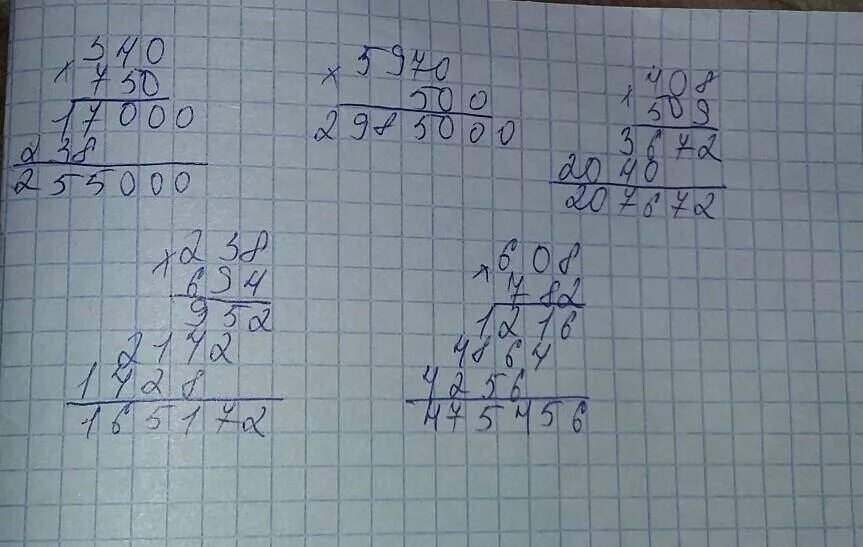 × 340
750
17000
238
255000
× 5970
500
2985000
× 408
509
3672
2040
207672
× 238
694
952
2142
1428
165172
× 608
782
1216
4864
4256
475456